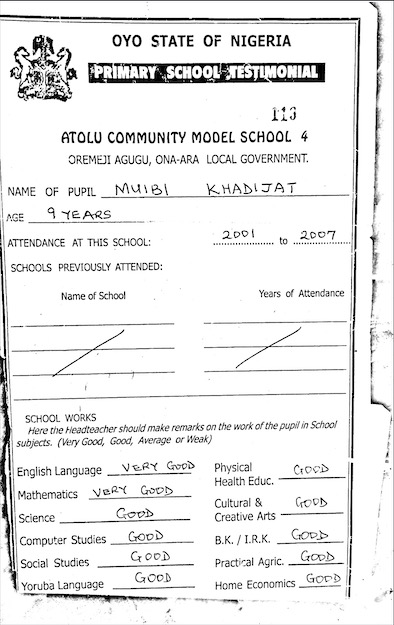 OYO STATE OF NIGERIA
PRIMARY SCHOOL TESTIMONIAL
113
ATOLU COMMUNITY MODEL SCHOOL 4
OREMEJI AGUGU, ONA-ARA LOCAL GOVERNMENT.
NAME OF PUPIL MUIBI KHADIJAT
AGE 9 YEARS
ATTENDANCE AT THIS SCHOOL: 2001 to 2007
SCHOOLS PREVIOUSLY ATTENDED:
Name of School Years of Attendance
SCHOOL WORKS
Here the Headteacher should make remarks on the work of the pupil in School
subjects. (Very Good, Good, Average or Weak)
English Language VERY GOOD
Mathematics VERY GOOD
Science GOOD
Computer Studies GOOD
Social Studies GOOD
Yoruba Language GOOD
Physical
Health Educ. GOOD
Cultural &
Creative Arts GOOD
B.K. / I.R.K. GOOD
Practical Agric. GOOD
Home Economics GOOD